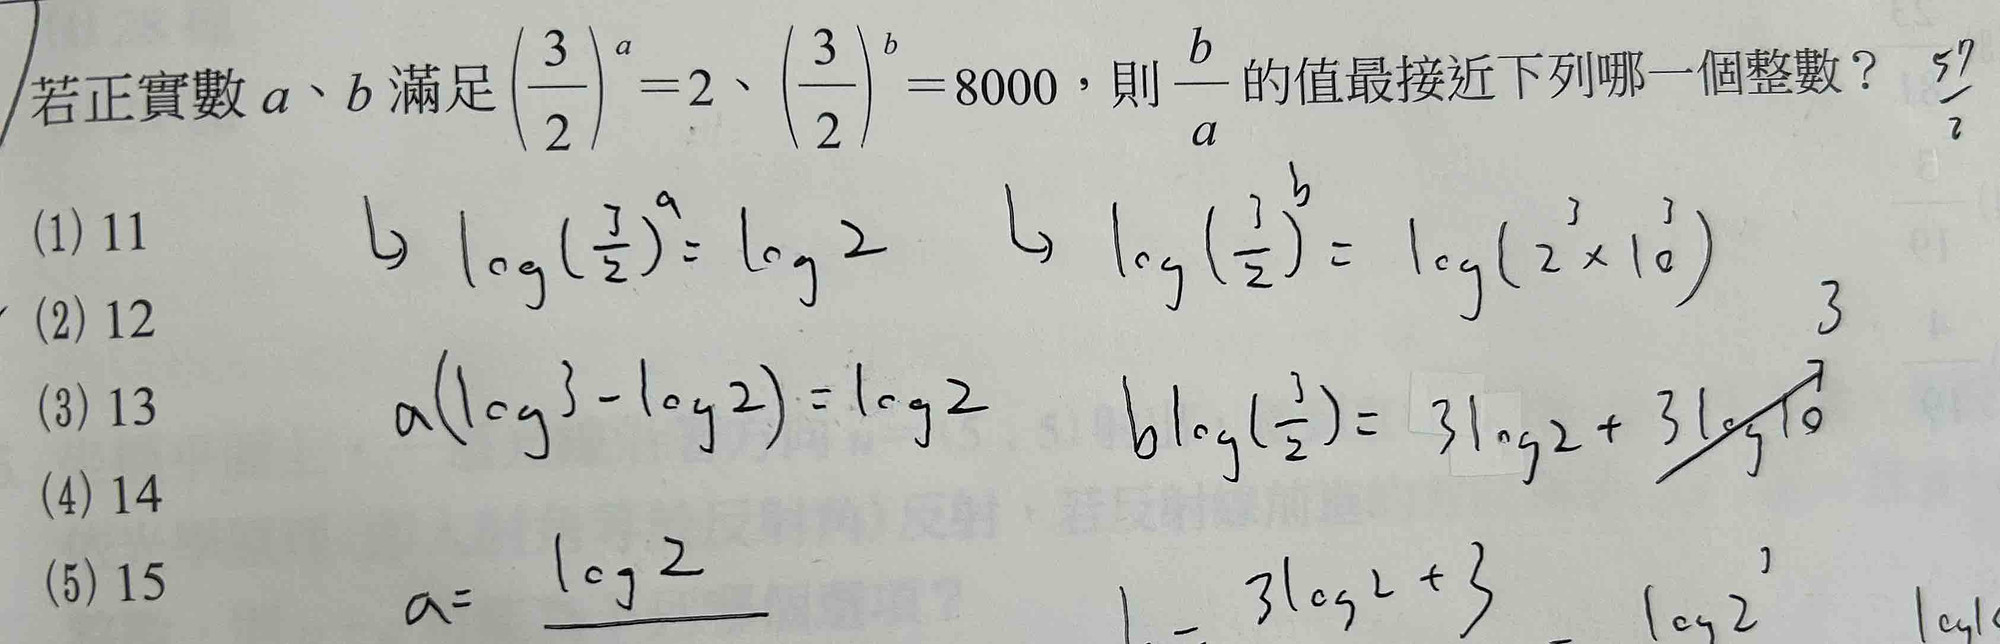 若正實數 a、b 滿足 (3/2)^a = 2、(3/2)^b = 8000，則 b/a 的值最接近下列哪一個整數？ 57/2
(1) 11
(2) 12
(3) 13
(4) 14
(5) 15
↳ log(3/2)^a = log 2
a(log3 - log2) = log2
a = log2
↳ log(3/2)^b = log(2^3 × 10^3)
b log(3/2) = 3log2 + 3log10 3
3log2 + 3 = log2^3